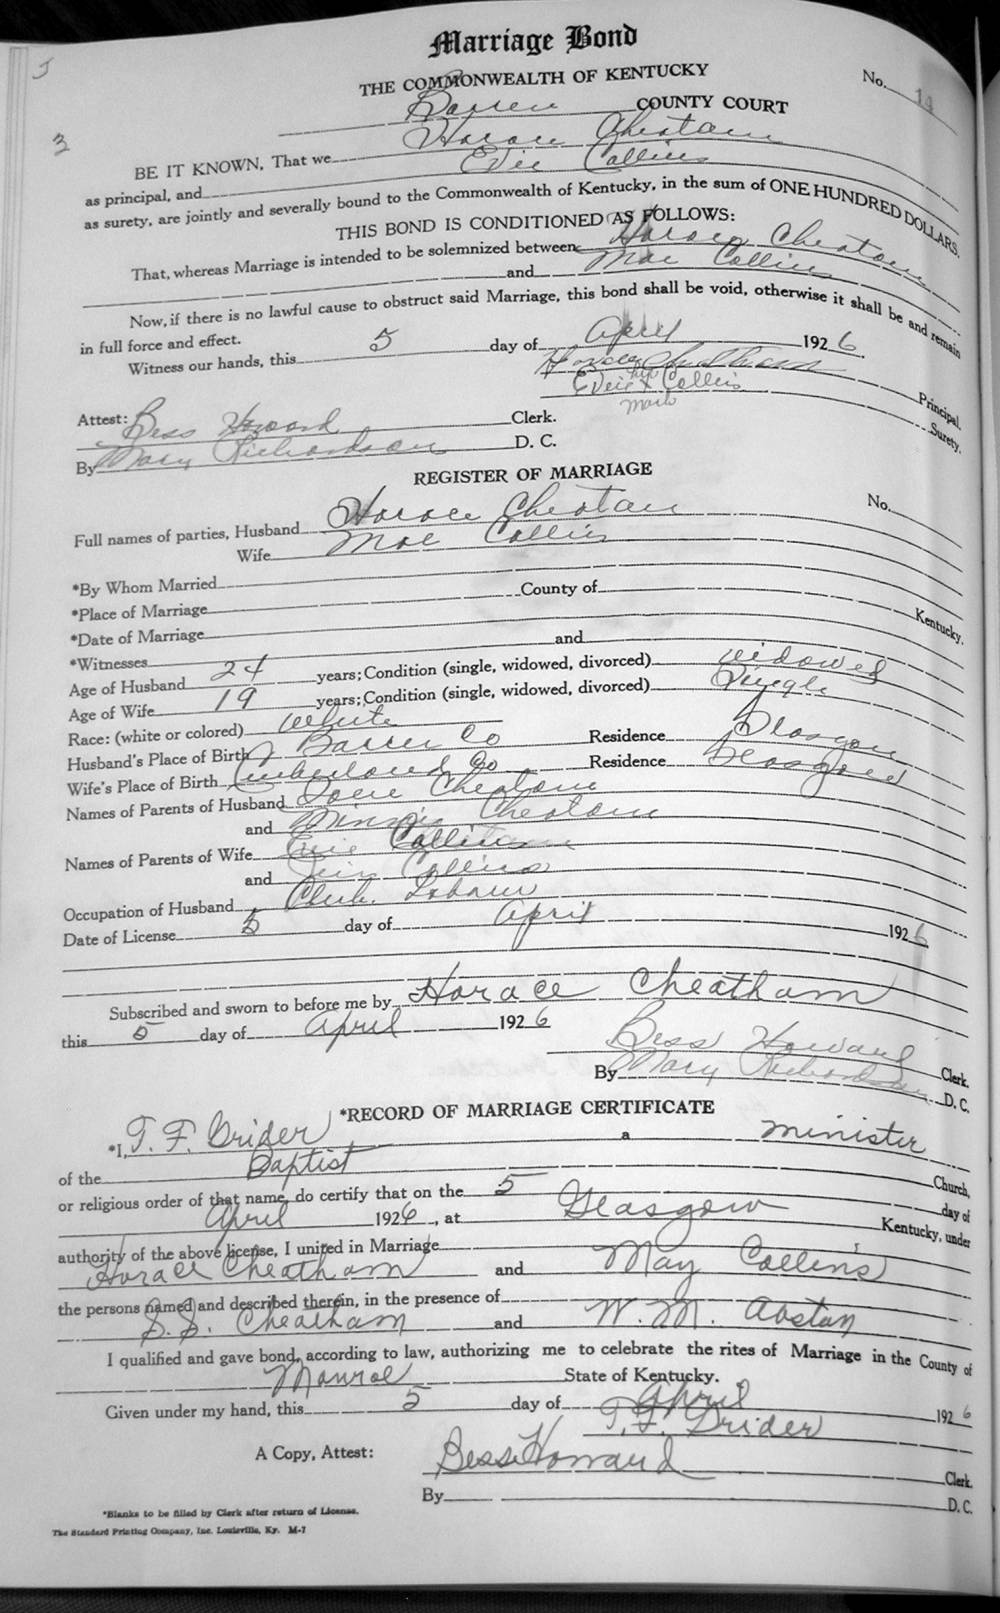 5
Marriage Bond
THE COMMONWEALTH OF KENTUCKY
No. 14
3
Barren COUNTY COURT
BE IT KNOWN, That we Horace Cheatam
as principal, and Evie Collins
as surety, are jointly and severally bound to the Commonwealth of Kentucky, in the sum of ONE HUNDRED DOLLARS.
THIS BOND IS CONDITIONED AS FOLLOWS:
That, whereas Marriage is intended to be solemnized between Horace Cheatam
and Mae Collins
Now, if there is no lawful cause to obstruct said Marriage, this bond shall be void, otherwise it shall be and remain
in full force and effect.
Witness our hands, this 5 day of April 1926.
Horace Cheatham Principal.
Evie his x mark Collins Surety.
Attest: Bess Howard Clerk.
By Mary Richardson D. C.
REGISTER OF MARRIAGE
No.
Full names of parties, Husband Horace Cheatam
Wife Mae Collins
*By Whom Married
*Place of Marriage County of Kentucky.
*Date of Marriage
*Witnesses and
Age of Husband 24 years; Condition (single, widowed, divorced) widowed
Age of Wife 19 years; Condition (single, widowed, divorced) Single
Race: (white or colored) white
Husband's Place of Birth Barren Co Residence Glasgow
Wife's Place of Birth Cumberland Co Residence Glasgow
Names of Parents of Husband Cheatam
and Cheatam
Names of Parents of Wife Evie Collins
and Jim Collins
Occupation of Husband
Date of License 5 day of April 1926
Subscribed and sworn to before me by Horace Cheatham
this 5 day of April 1926
Bess Howard Clerk.
By Mary Richardson D. C.
*RECORD OF MARRIAGE CERTIFICATE
*I, T. F. Grider a minister
of the Baptist Church,
or religious order of that name, do certify that on the 5 day of
April 1926, at Glasgow Kentucky, under
authority of the above license, I united in Marriage
Horace Cheatham and May Collins
the persons named and described therein, in the presence of
S. S. Cheatham and W. M. Austan
I qualified and gave bond, according to law, authorizing me to celebrate the rites of Marriage in the County of
Monroe State of Kentucky.
Given under my hand, this 5 day of April 1926
T. F. Grider
A Copy, Attest: Bess Howard Clerk.
By D. C.
*Blanks to be filled by Clerk after return of License.
The Standard Printing Company, Inc. Louisville, Ky. M-7